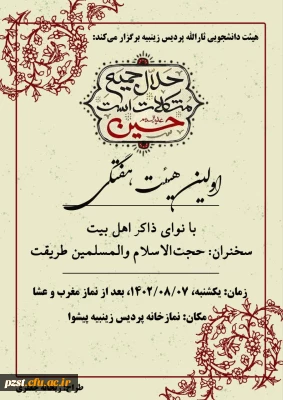 هیئت دانشجویی ثارالله پردیس زینبیه برگزار می‌کند:
حلال جمیع
مشکلات است
حسین
علیه‌السلام
اولین هیئت هفتگی
با نوای ذاکر اهل بیت
سخنران: حجت‌الاسلام والمسلمین طریقت
زمان: یکشنبه، ۱۴۰۲/۰۸/۰۷، بعد از نماز مغرب و عشا
مکان: نمازخانه پردیس زینبیه پیشوا
pzst.cfu.ac.ir
طراح: